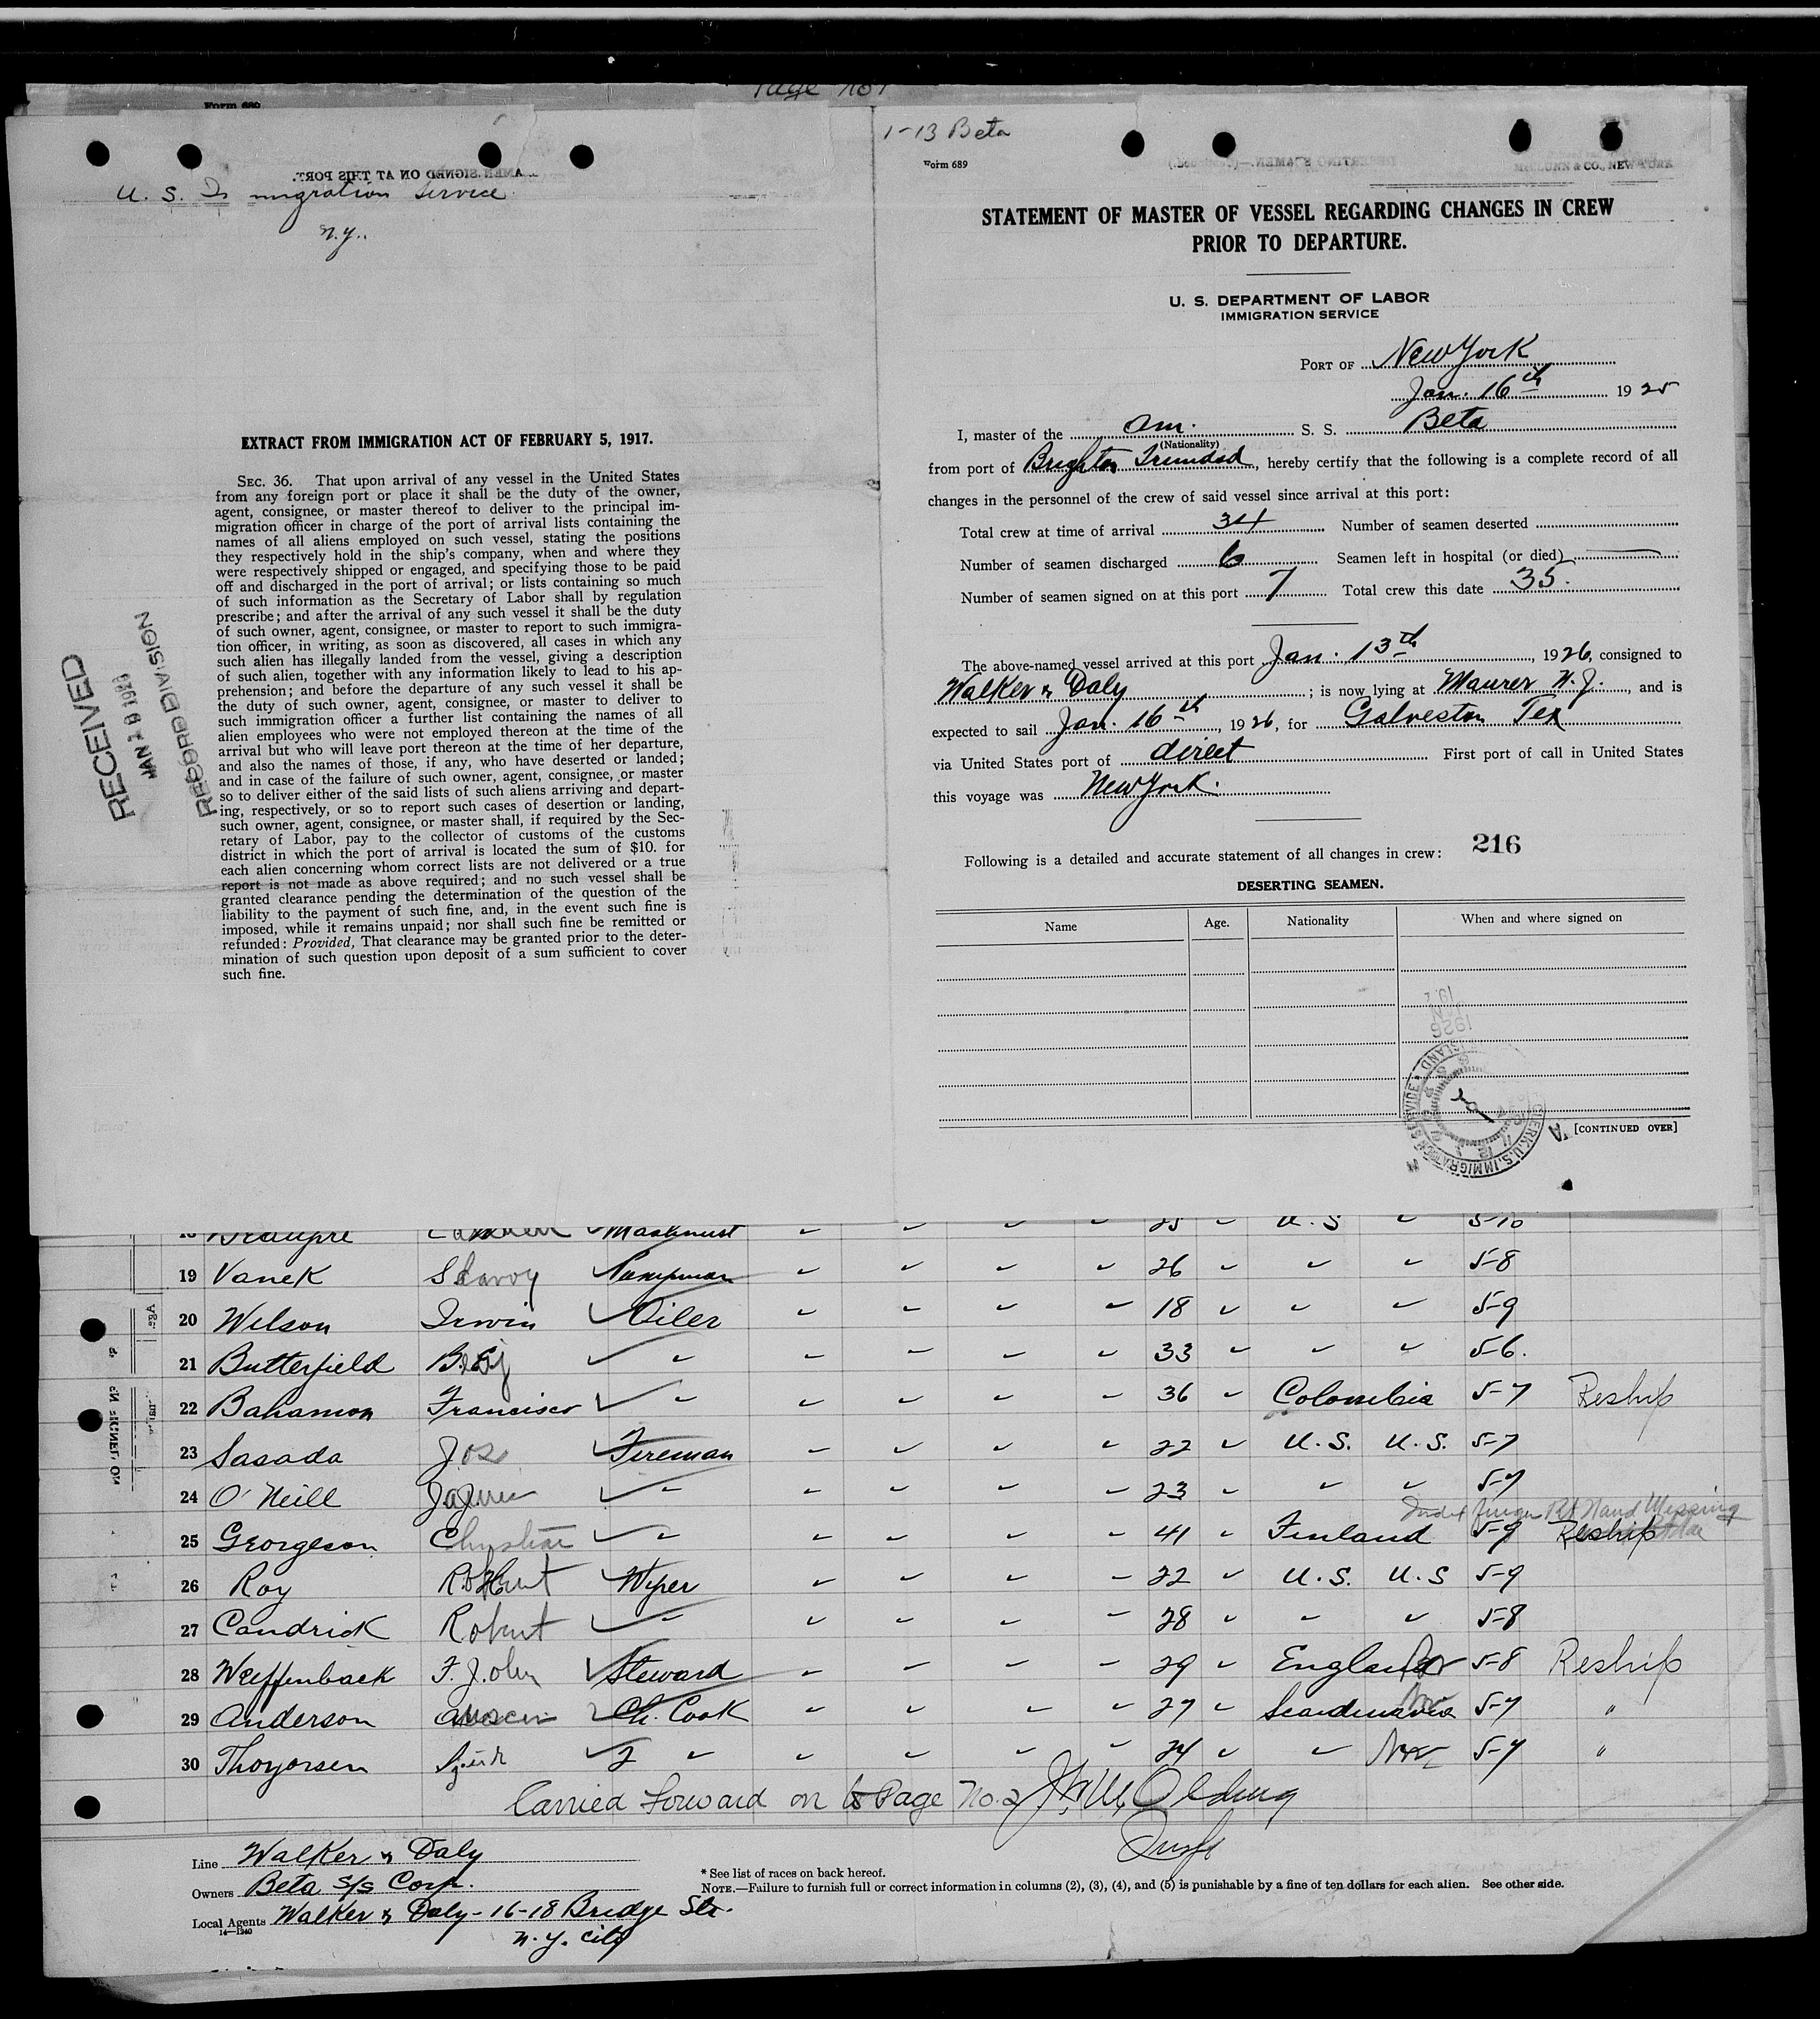 Form 689
U. S. Immigration Service
N.Y.
EXTRACT FROM IMMIGRATION ACT OF FEBRUARY 5, 1917.
SEC. 36. That upon arrival of any vessel in the United States
from any foreign port or place it shall be the duty of the owner,
agent, consignee, or master thereof to deliver to the principal im-
migration officer in charge of the port of arrival lists containing the
names of all aliens employed on such vessel, stating the positions
they respectively hold in the ship's company, when and where they
were respectively shipped or engaged, and specifying those to be paid
off and discharged in the port of arrival; or lists containing so much
of such information as the Secretary of Labor shall by regulation
prescribe; and after the arrival of any such vessel it shall be the duty
of such owner, agent, consignee, or master to report to such immigra-
tion officer, in writing, as soon as discovered, all cases in which any
such alien has illegally landed from the vessel, giving a description
of such alien, together with any information likely to lead to his ap-
prehension; and before the departure of any such vessel it shall be
the duty of such owner, agent, consignee, or master to deliver to
such immigration officer a further list containing the names of all
alien employees who were not employed thereon at the time of the
arrival but who will leave port thereon at the time of her departure,
and also the names of those, if any, who have deserted or landed;
and in case of the failure of such owner, agent, consignee, or master
so to deliver either of the said lists of such aliens arriving and depart-
ing, respectively, or so to report such cases of desertion or landing,
such owner, agent, consignee, or master shall, if required by the Sec-
retary of Labor, pay to the collector of customs of the customs
district in which the port of arrival is located the sum of $10. for
each alien concerning whom correct lists are not delivered or a true
report is not made as above required; and no such vessel shall be
granted clearance pending the determination of the question of the
liability to the payment of such fine, and, in the event such fine is
imposed, while it remains unpaid; nor shall such fine be remitted or
refunded: Provided, That clearance may be granted prior to the deter-
mination of such question upon deposit of a sum sufficient to cover
such fine.
RECEIVED
RECORD DIVISION
1-13 Beta
Form 689
STATEMENT OF MASTER OF VESSEL REGARDING CHANGES IN CREW
PRIOR TO DEPARTURE.
U. S. DEPARTMENT OF LABOR
IMMIGRATION SERVICE
PORT OF New York
Jan. 16th 1925
I, master of the Am. S. S. Beta
(Nationality)
from port of Brighton Trinidad, hereby certify that the following is a complete record of all
changes in the personnel of the crew of said vessel since arrival at this port:
Total crew at time of arrival 34 Number of seamen deserted
Number of seamen discharged 6 Seamen left in hospital (or died)
Number of seamen signed on at this port 7 Total crew this date 35.
The above-named vessel arrived at this port Jan. 13th, 1926, consigned to
Walker & Daly; is now lying at Maurer N.J., and is
expected to sail Jan. 16th, 1926, for Galveston Tex
via United States port of direct First port of call in United States
this voyage was New York.
Following is a detailed and accurate statement of all changes in crew: 216
DESERTING SEAMEN.
Name Age. Nationality When and where signed on
[CONTINUED OVER]
25 U.S 5-10
19 Vanek Pumpman 26 5-8
20 Wilson Irwin Oiler 18 5-9
21 Butterfield 33 5-6.
22 Bahamon Francisco 36 Colombia 5-7 Reship
23 Sasada Jos Fireman 22 U.S. U.S. 5-7
24 O'Neill 23 5-7
Index finger Rt Hand Missing
25 Georgeson Christian 41 Finland 5-9 Reship
26 Roy Robert Wiper 22 U.S. U.S 5-9
27 Candrick Robert 28 5-8
28 Weiffenback F. John Steward 29 England 5-8 Reship
29 Anderson Ch. Cook 27 Scandinavia 5-7 "
30 Thoyorsen 2 24 Nor 5-7 "
Carried Forward on Page No. 2
Line Walker & Daly
Owners Beta S/S Corp.
Local Agents Walker & Daly - 16-18 Bridge Str.
14—1240
N.Y. City
* See list of races on back hereof.
NOTE.—Failure to furnish full or correct information in columns (2), (3), (4), and (5) is punishable by a fine of ten dollars for each alien. See other side.